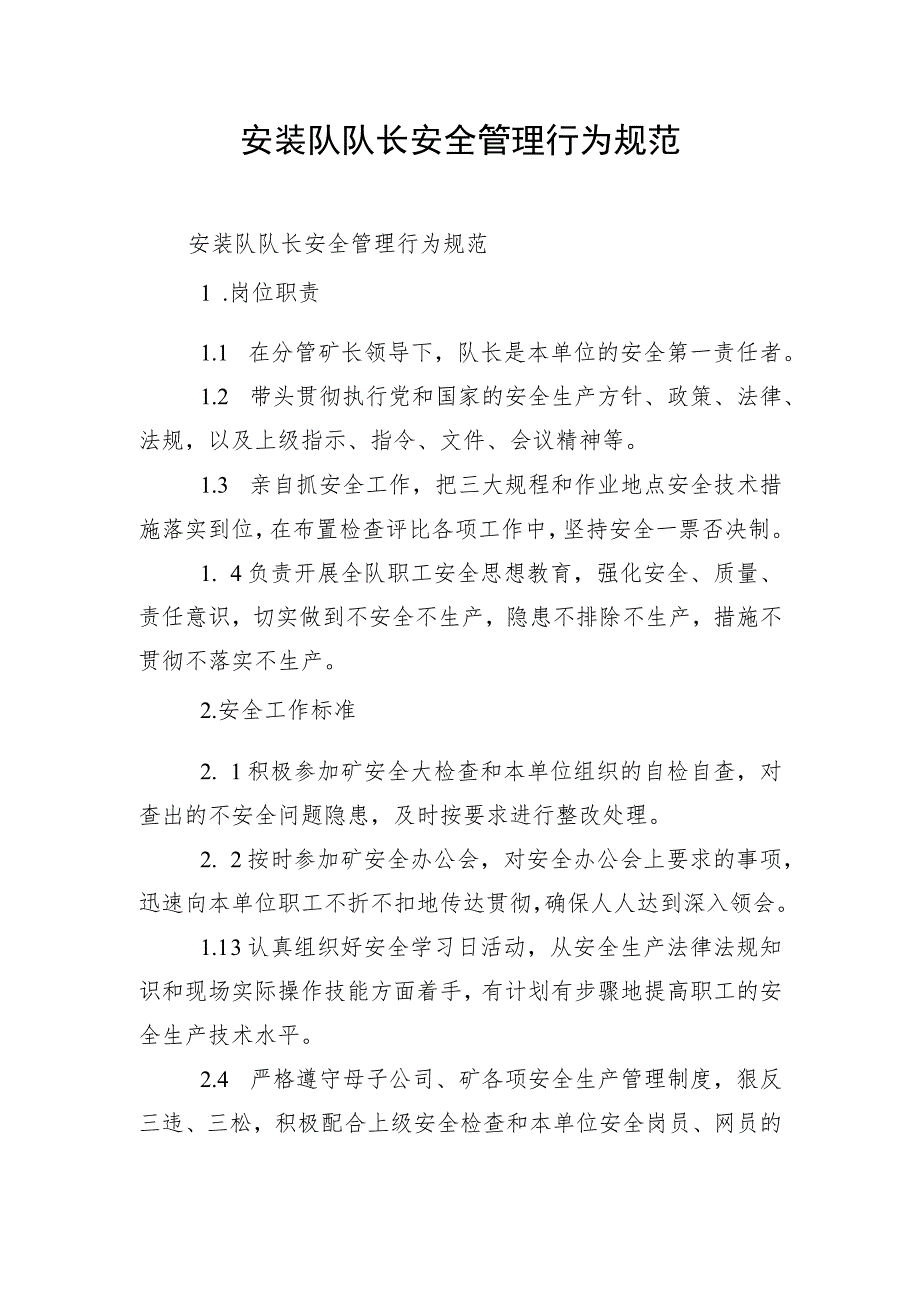 安装队队长安全管理行为规范
安装队队长安全管理行为规范
1 .岗位职责
1.1 在分管矿长领导下，队长是本单位的安全第一责任者。
1.2 带头贯彻执行党和国家的安全生产方针、政策、法律、
法规，以及上级指示、指令、文件、会议精神等。
1.3 亲自抓安全工作，把三大规程和作业地点安全技术措
施落实到位，在布置检查评比各项工作中，坚持安全一票否决制。
1. 4负责开展全队职工安全思想教育，强化安全、质量、
责任意识，切实做到不安全不生产，隐患不排除不生产，措施不
贯彻不落实不生产。
2.安全工作标准
2. 1积极参加矿安全大检查和本单位组织的自检自查，对
查出的不安全问题隐患，及时按要求进行整改处理。
2. 2按时参加矿安全办公会，对安全办公会上要求的事项，
迅速向本单位职工不折不扣地传达贯彻，确保人人达到深入领会。
1.13认真组织好安全学习日活动，从安全生产法律法规知
识和现场实际操作技能方面着手，有计划有步骤地提高职工的安
全生产技术水平。
2.4 严格遵守母子公司、矿各项安全生产管理制度，狠反
三违、三松，积极配合上级安全检查和本单位安全岗员、网员的